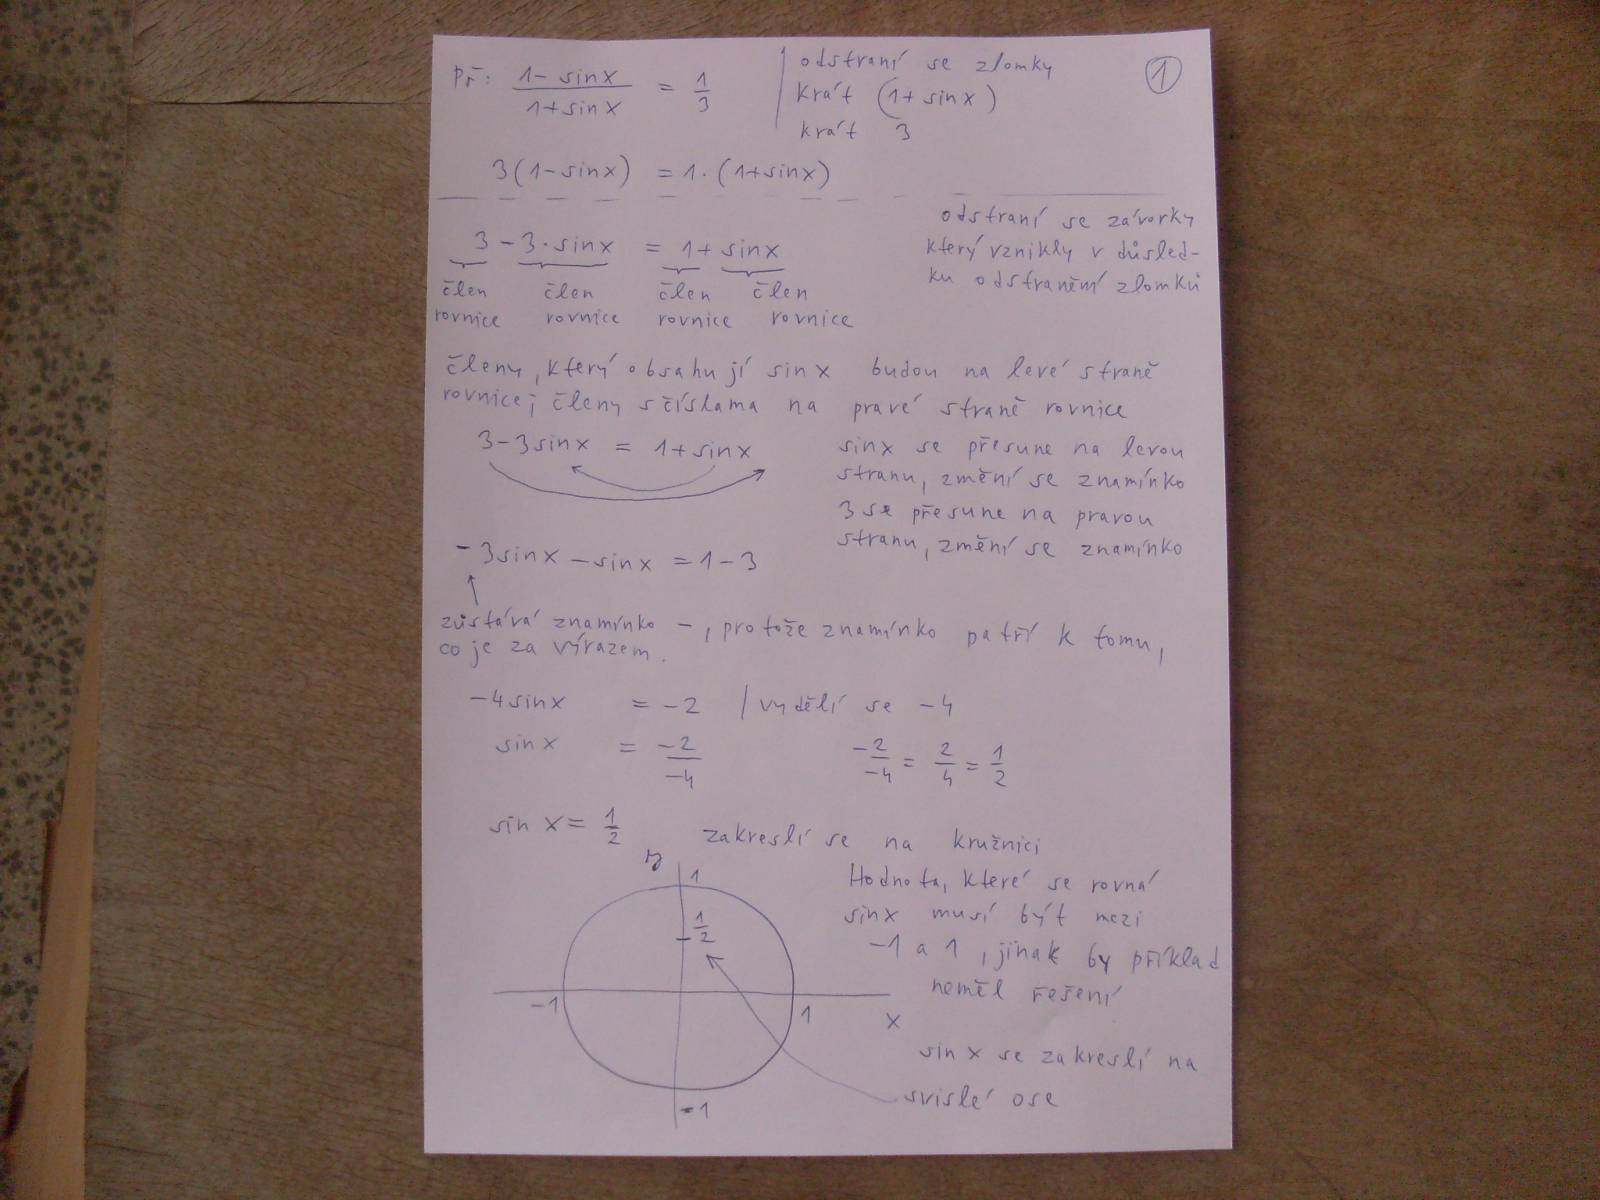 Př: (1 - sin x)/(1 + sin x) = 1/3
odstraní se zlomky
krát (1 + sin x)
krát 3
1
3(1 - sin x) = 1 · (1 + sin x)
odstraní se závorky
který vznikly v důsled-
ku odstranění zlomků
3 - 3 · sin x = 1 + sin x
člen člen člen člen
rovnice rovnice rovnice rovnice
členy, který obsahují sin x budou na levé straně
rovnice; členy s číslama na pravé straně rovnice
3 - 3 sin x = 1 + sin x
sin x se přesune na levou
stranu, změní se znamínko
3 se přesune na pravou
stranu, změní se znamínko
- 3 sin x - sin x = 1 - 3
zůstává znamínko -, protože znamínko patří k tomu,
co je za výrazem.
-4 sin x = -2 / vydělí se -4
sin x = -2/-4
-2/-4 = 2/4 = 1/2
sin x = 1/2
zakreslí se na kružnici
y
1
1/2
-1
1
x
-1
Hodnota, které se rovná
sin x musí být mezi
-1 a 1, jinak by příklad
neměl řešení
sin x se zakreslí na
svislé ose